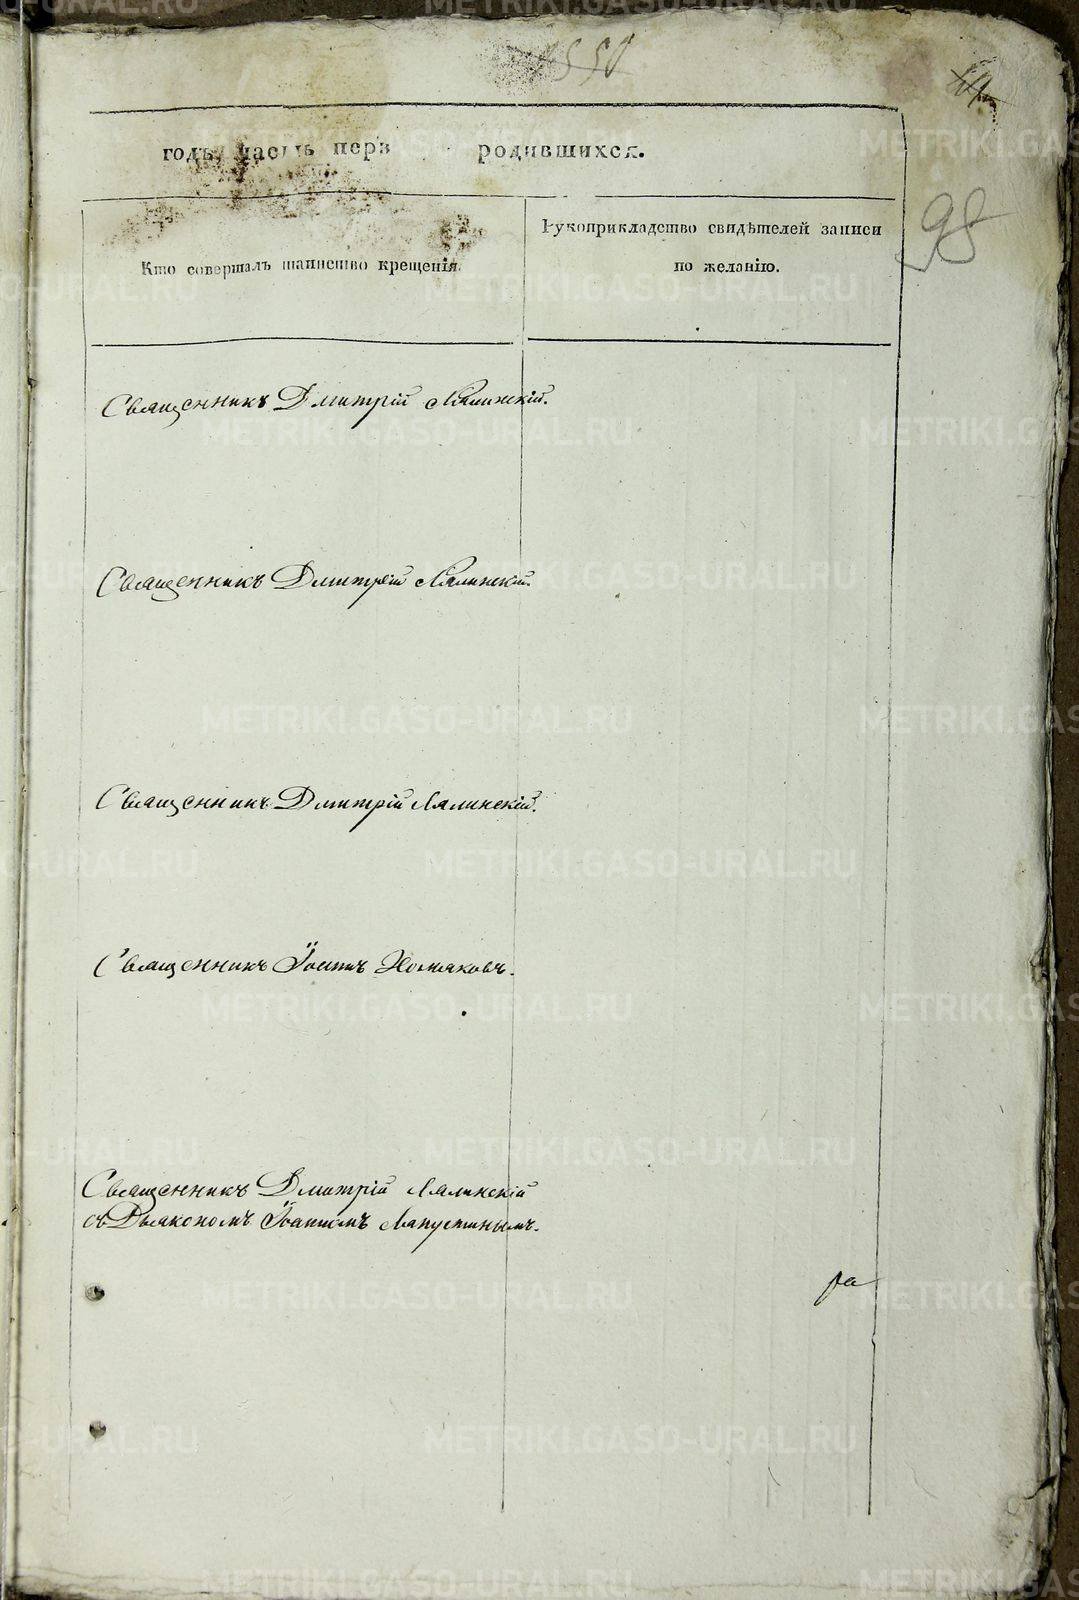 550
годъ, часть перв родившихся.
98
Рукоприкладство свидѣтелей записи
Кто совершалъ таинство крещенія.
по желанію.
Священникъ Дмитрій Лялинскій.
Священникъ Дмитрій Лялинскій.
Священникъ Дмитрій Лялинскій.
Священникъ Іоаннъ Хомяковъ.
Священникъ Дмитрій Лялинскій
съ Дьякономъ Іоанномъ Лапустинымъ.
ра
METRIKI.GASO-URAL.RU